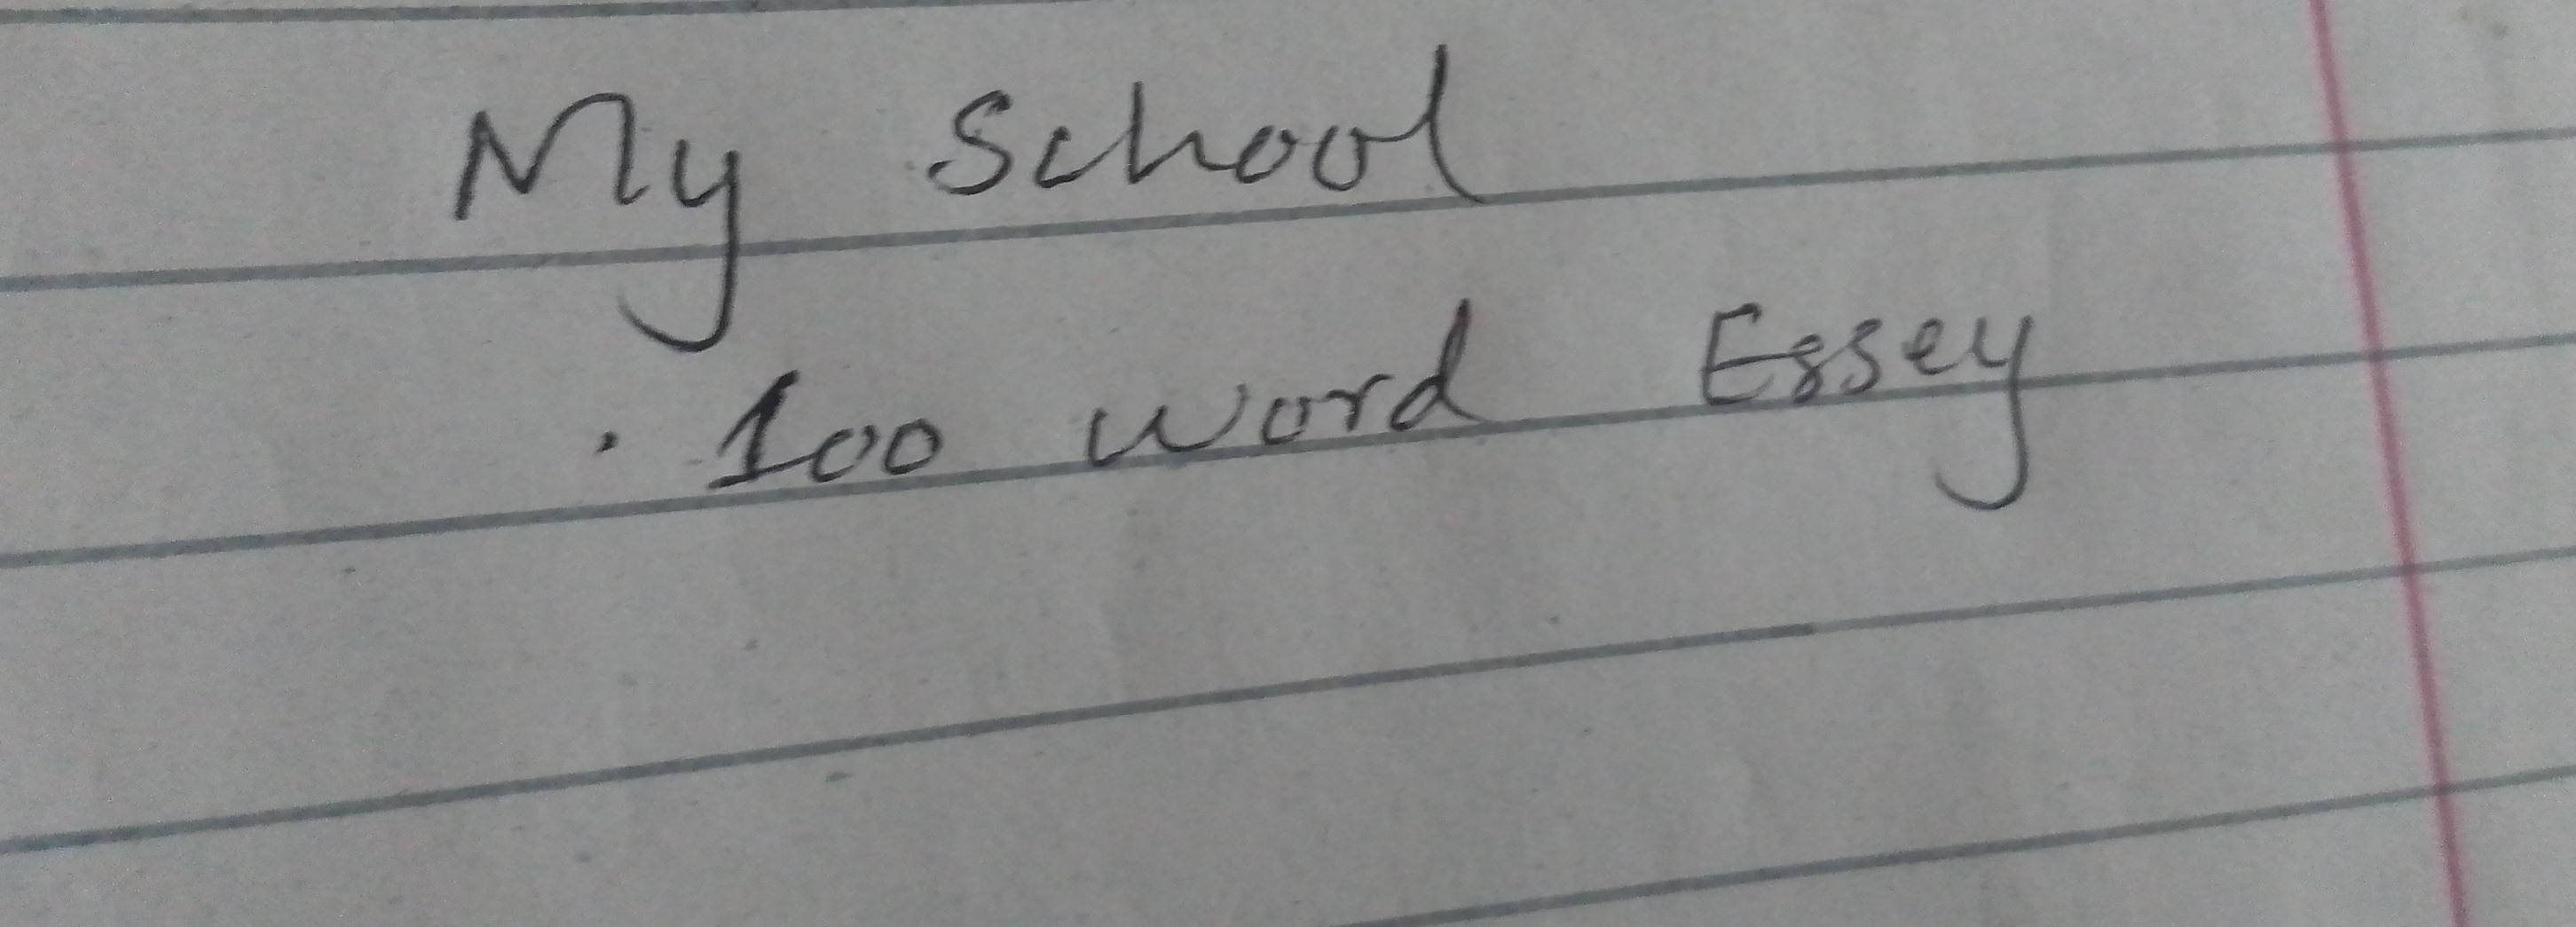 My School
. 100 word Essey